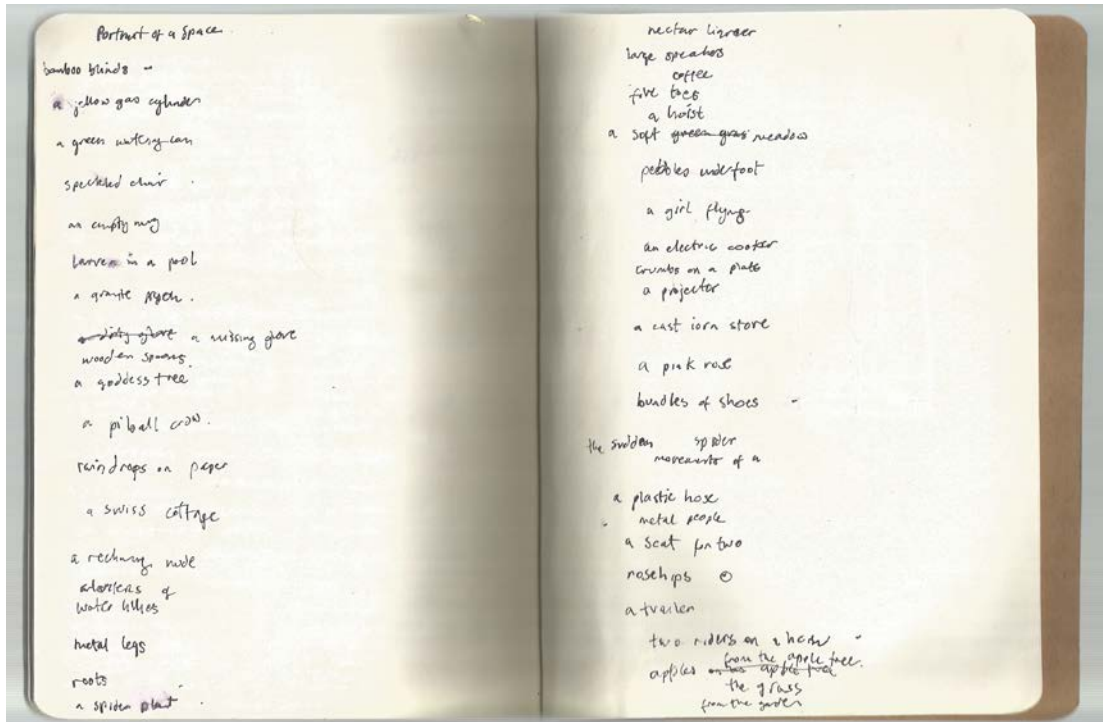 Portrait of a Space
bamboo blinds -
a yellow gas cylinder
a green watering can
speckled chair
an empty mug
larvea in a pool
a granite
a missing glove
wooden spoons
a goddess tree
a piball crow.
raindrops on paper
a swiss cottage
a reclining nude
of
water lillies
metal legs
roots
a spider plant
nectar
large speakers
coffee
five toes
a hoist
a soft green grass meadow
pebbles underfoot
a girl flying
an electric cooker
crumbs on a plate
a projector
a cast iorn stove
a pink rose
bundles of shoes -
the sudden spider
movements of a
a plastic hose
metal people
a seat for two
rosehips
a trailer
two riders on a horse -
from the apple tree.
apples apple tree
the grass
from the garden